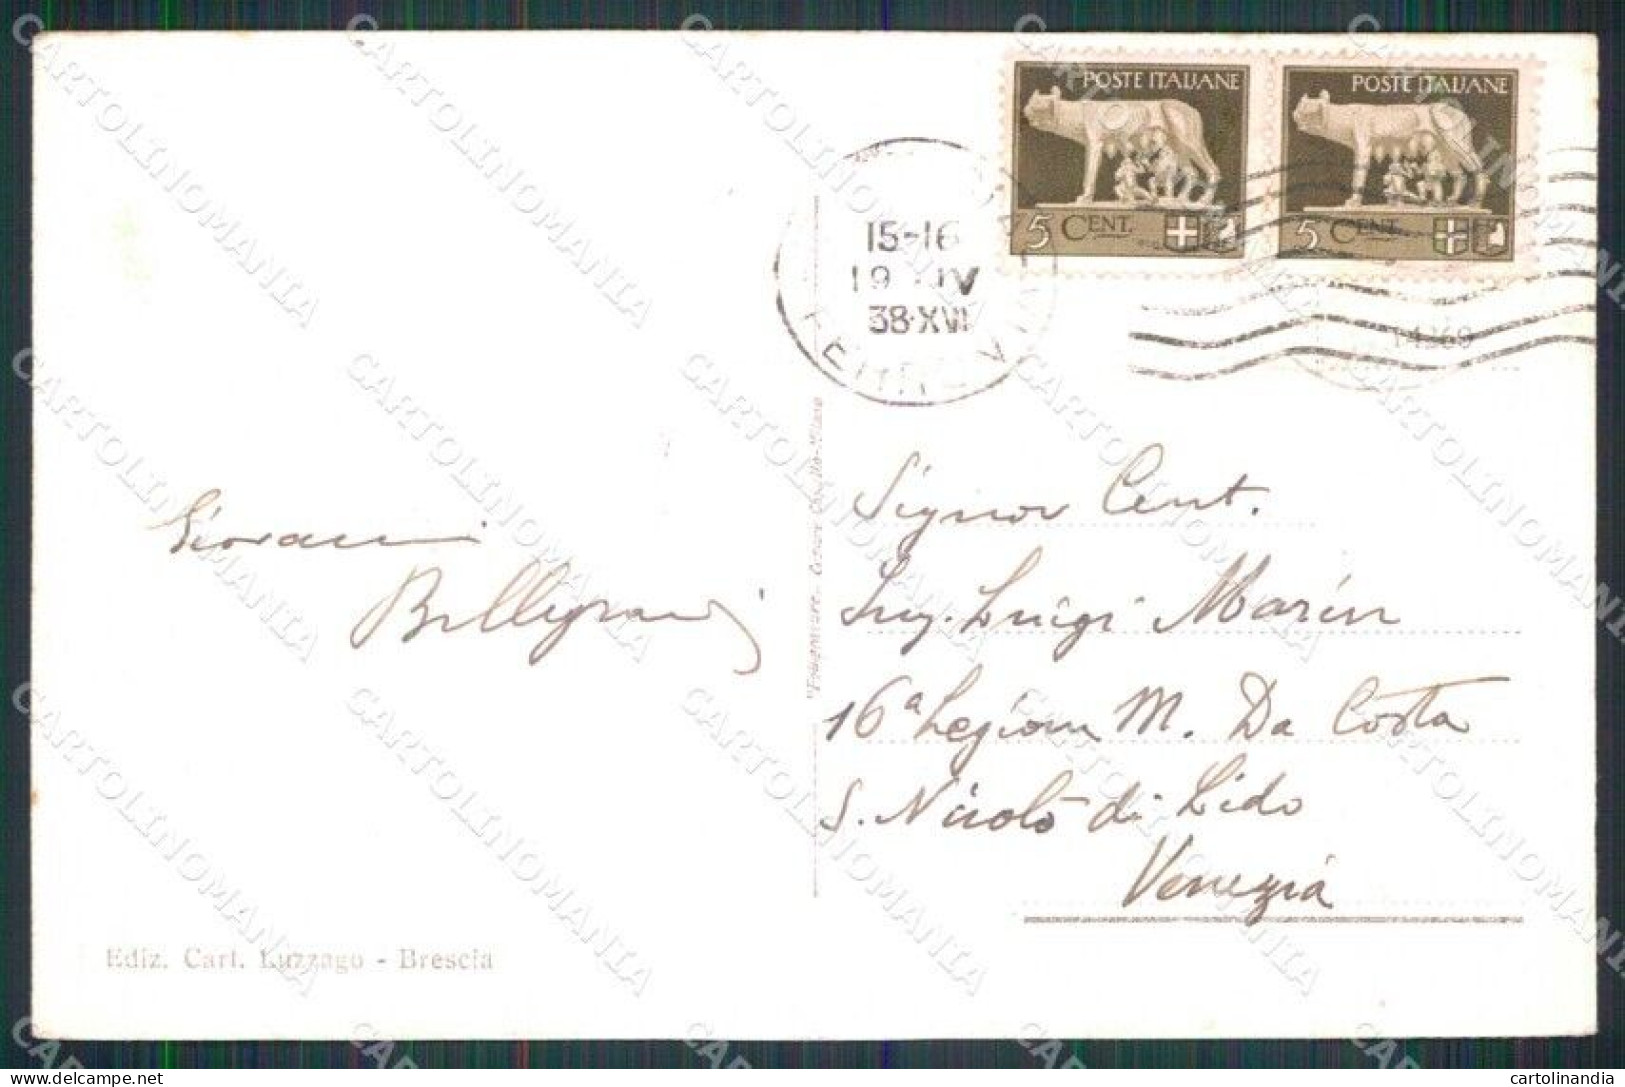 POSTE ITALIANE
5 CENT.
POSTE ITALIANE
5 CENT.
15-16
19 IV
38·XVI
14869
Giovanni
Signor Cent.
Ing. Luigi Marin
16ª Legione M. Da Costa
S. Nicolò di Lido
Venezia
"Fotogravure" Cesare Milano
Ediz. Cart. Luzzago - Brescia
CARTOLINOMANIA
cartolinandia